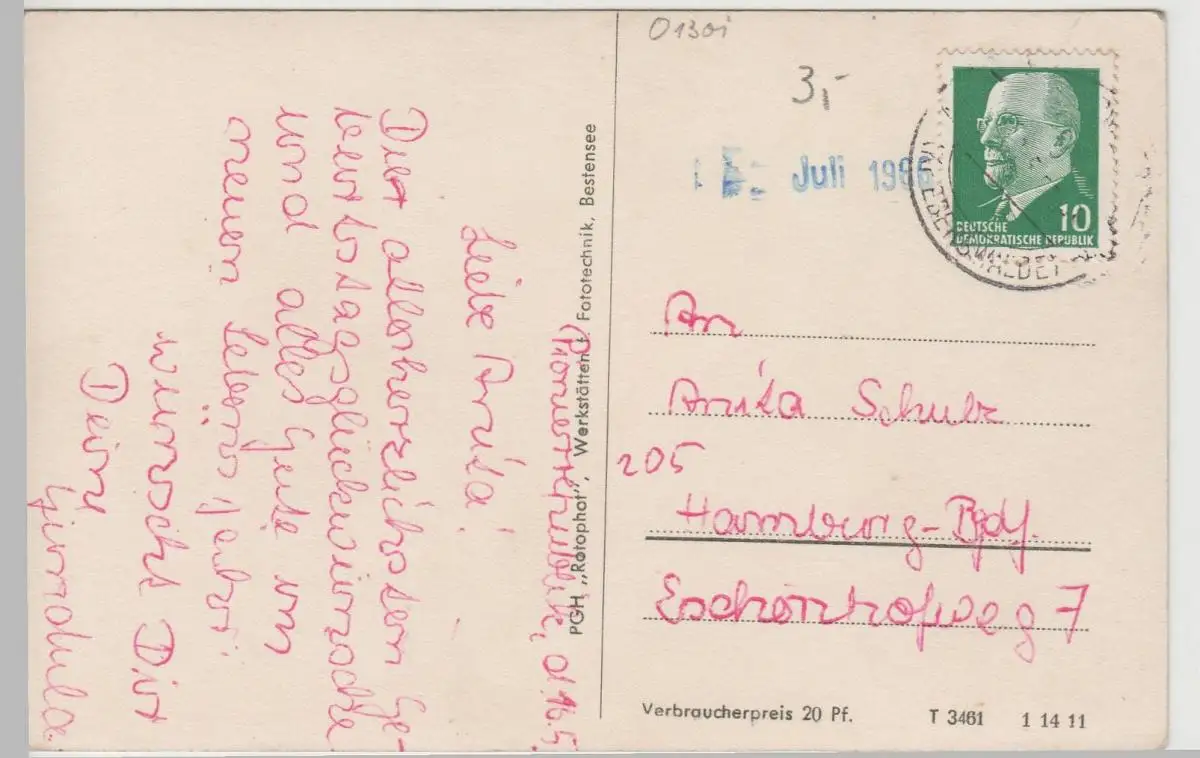 Pionierrepublik, d. 16.5
Liebe Anita!
Die allerherzlichsten Ge-
burtstagsglückwünsche
und alles Gute im
neuen Lebensjahr
wünscht Dir
Deine
Gundula.
PGH „Rotophot", Werkstätten f. Fototechnik, Bestensee
0130i
3,-
Juli 1966
DEUTSCHE
DEMOKRATISCHE REPUBLIK
10
An
Anita Schulz
205
Hamburg-Bgdf.
Eschenhofweg 7
Verbraucherpreis 20 Pf.
T 3461 1 14 11